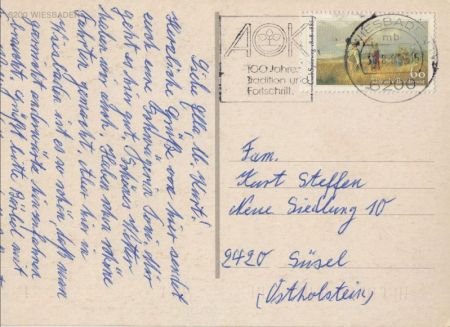 6200 WIESBADEN
Liebe Elli, lb. Kurt!
Herzliche Grüße von hier sendet
euch eure Schwägerin Toni. Mir
geht es gut. Schönes Wetter
haben wir auch. Haben schon schöne
Fahrten gemacht. Aber hier in
Wiesbaden ist es so schön, daß man
garnicht unbedingt hinausfahren
braucht. grüßt bitte Bärbel mit
AOK
100 Jahre
Tradition und
Fortschritt.
WIESBADEN
mb
6200
60
Fam.
Kurt Steffen
Neue Siedlung 10
2420 Süsel
(Ostholstein)